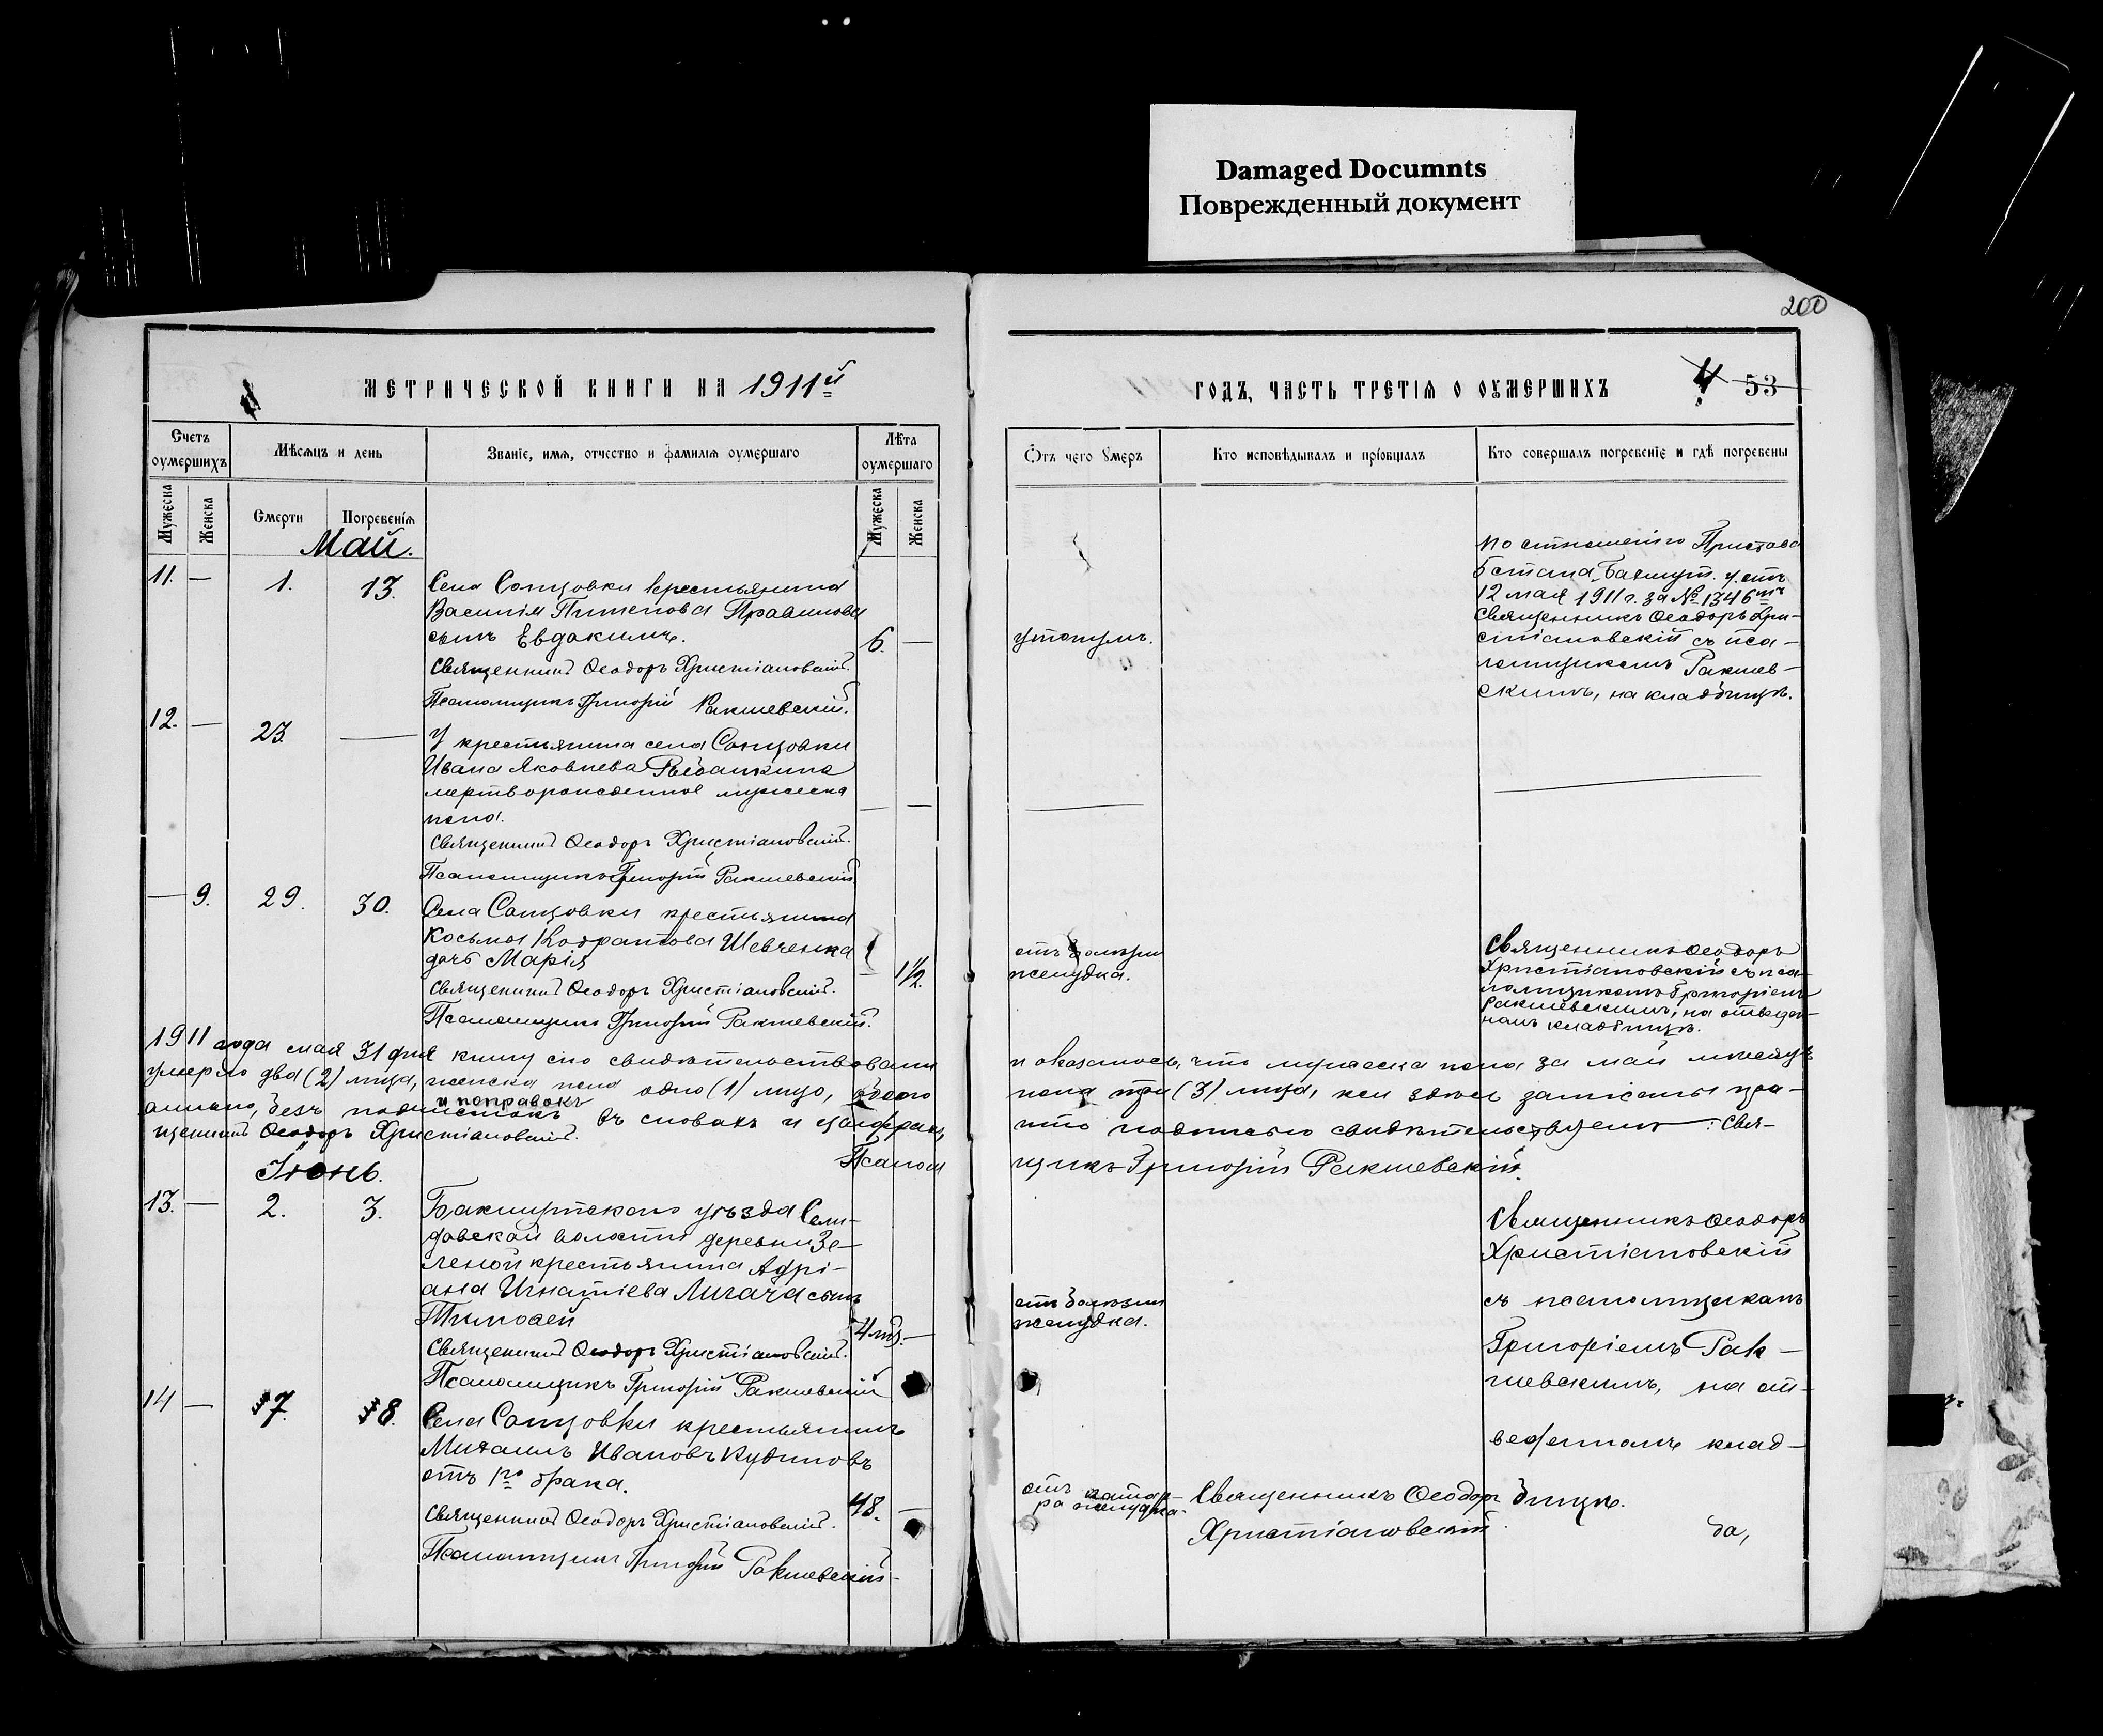 Damaged Documnts
Поврежденный документ
200
МЕТРИЧЕСКОЙ КНИГИ НА 1911й
ГОДЪ, ЧАСТЬ ТРЕТІѦ О ОУМЕРШИХЪ
4 53
Счетъ оумершихъ
Мѣсѧцъ и день
Званіе, имѧ, отчество и фамилїѧ оумершаго
Лѣта оумершаго
Отъ чего умеръ
Кто исповѣдывалъ и прїобщалъ
Кто совершалъ погребенїе и гдѣ погребены
Мужеска
Женска
Смерти
Погребенїѧ
Мужеска
Женска
Май.
11. — 1. 13. Села Сонцовки крестьянина
Василія Пименова Правилова
сынъ Евдокимъ. 6. —
Священникъ Ѳеодоръ Христіановскій.
Псаломщикъ Григорій Ракшевскій.
утонулъ.
по отношенію Пристава
5 стана Бахмут. у. отъ
12 мая 1911 г. за № 1346мъ
Священникъ Ѳеодоръ Хри-
стіановскій съ пса-
ломщикомъ Ракшев-
скимъ, на кладбищѣ.
12. — 23. — У крестьянина села Сонцовки
Ивана Яковлева
мертворожденное мужеска
пола. — —
Священникъ Ѳеодоръ Христіановскій.
Псаломщикъ Григорій Ракшевскій.
— 9. 29. 30. Села Сонцовки крестьянина
Косьмы Кодратова Шевченка
дочь Марія — 1½.
Священникъ Ѳеодоръ Христіановскій.
Псаломщикъ Григорій Ракшевскій.
отъ болѣзни
желудка.
Священникъ Ѳеодоръ
Христіановскій съ пса-
ломщикомъ Григоріемъ
Ракшевскимъ, на отведен-
номъ кладбищѣ.
1911 года мая 31 дня книгу сію свидѣтельствовали и оказалось, что мужеска пола за май мѣсяцъ
умерло два (2) лица, женска пола одно (1) лицо, обоего пола три (3) лица, кои здѣсь записаны пра-
вильно, безъ подчистокъ и поправокъ въ словахъ и цыфрахъ, что подписью свидѣтельствуемъ: Свя-
щенникъ Ѳеодоръ Христіановскій.
Псаломщикъ Григорій Ракшевскій.
Іюнь.
13. — 2. 3. Бахмутскаго уѣзда Сели-
довской волости деревни Зе-
леной крестьянина Адрі-
ана Игнатіева Лигача сынъ
Тимоѳей 4 мѣ. —
Священникъ Ѳеодоръ Христіановскій.
Псаломщикъ Григорій Ракшевскій
отъ болѣзни
желудка.
Священникъ Ѳеодоръ
Христіановскій
съ псаломщикомъ
Григоріемъ Рак-
шевскимъ, на от-
веденномъ клад-
бищѣ.
14 — 7. 8. Села Сонцовки крестьянинъ
Михаилъ Ивановъ Кудиновъ
отъ 1го брака. 48. —
Священникъ Ѳеодоръ Христіановскій.
Псаломщикъ Григорій Ракшевскій
отъ катар-
ра желудка.
Священникъ Ѳеодоръ
Христіановскій.